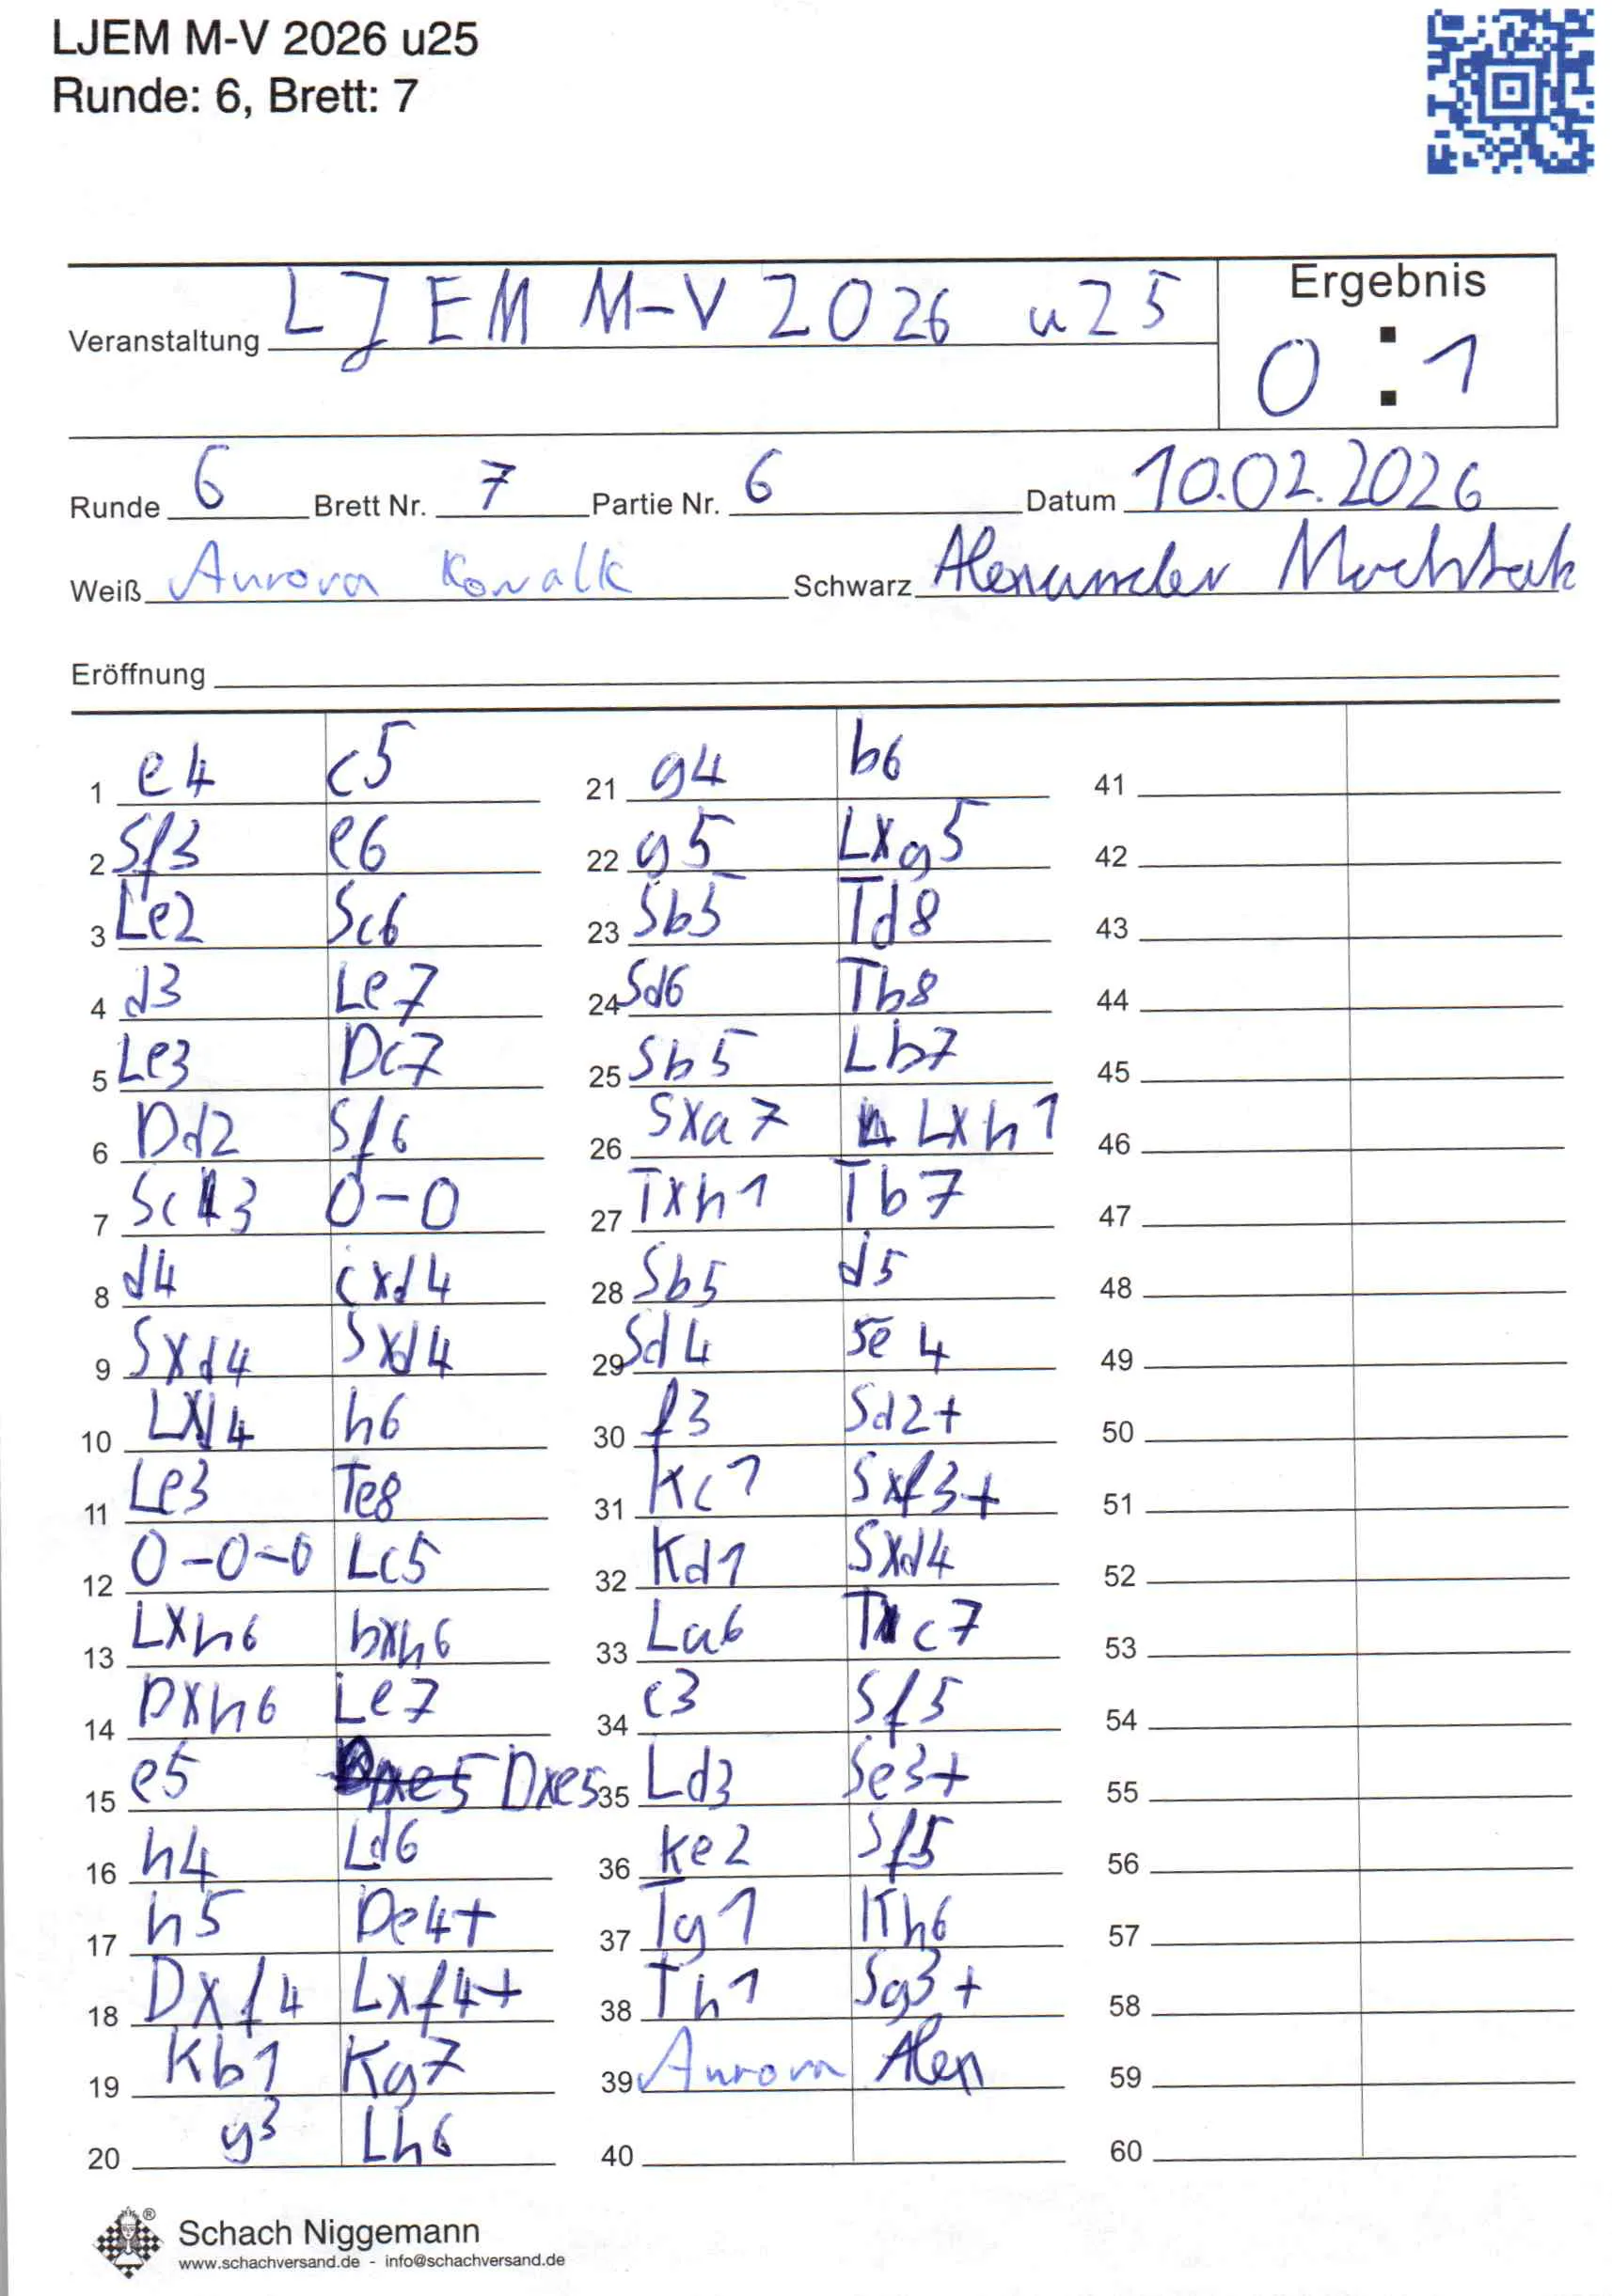 LJEM M-V 2026 u25
Runde: 6, Brett: 7
Ergebnis
Veranstaltung LJEM M-V 2026 u25
0 : 1
Runde 6 Brett Nr. 7 Partie Nr. 6 Datum 10.02.2026
Weiß Aurora Kowalk Schwarz Alexander
Eröffnung
1 e4 c5
2 Sf3 e6
3 Le2 Sc6
4 d3 Le7
5 Le3 Dc7
6 Dd2 Sf6
7 Sc3 0-0
8 d4 cxd4
9 Sxd4 Sxd4
10 Lxd4 h6
11 Le3 Te8
12 0-0-0 Lc5
13 Lxh6 bxh6
14 Dxh6 Le7
15 e5 Dxe5 Dxe5
16 h4 Ld6
17 h5 De4+
18 Dxf4 Lxf4+
19 Kb1 Kg7
20 g3 Lh6
21 g4 b6
22 g5 Lxg5
23 Sb5 Td8
24 Sd6 Tb8
25 Sb5 Lb7
26 Sxa7 Lxh1
27 Txh1 Tb7
28 Sb5 d5
29 Sd4 Se4
30 f3 Sd2+
31 Kc1 Sxf3+
32 Kd1 Sxd4
33 La6 Tc7
34 c3 Sf5
35 Ld3 Se3+
36 Ke2 Sf5
37 Tg1 Kh6
38 Th1 Sg3+
39 Aurora Alex
40
41
42
43
44
45
46
47
48
49
50
51
52
53
54
55
56
57
58
59
60
Schach Niggemann
www.schachversand.de - info@schachversand.de